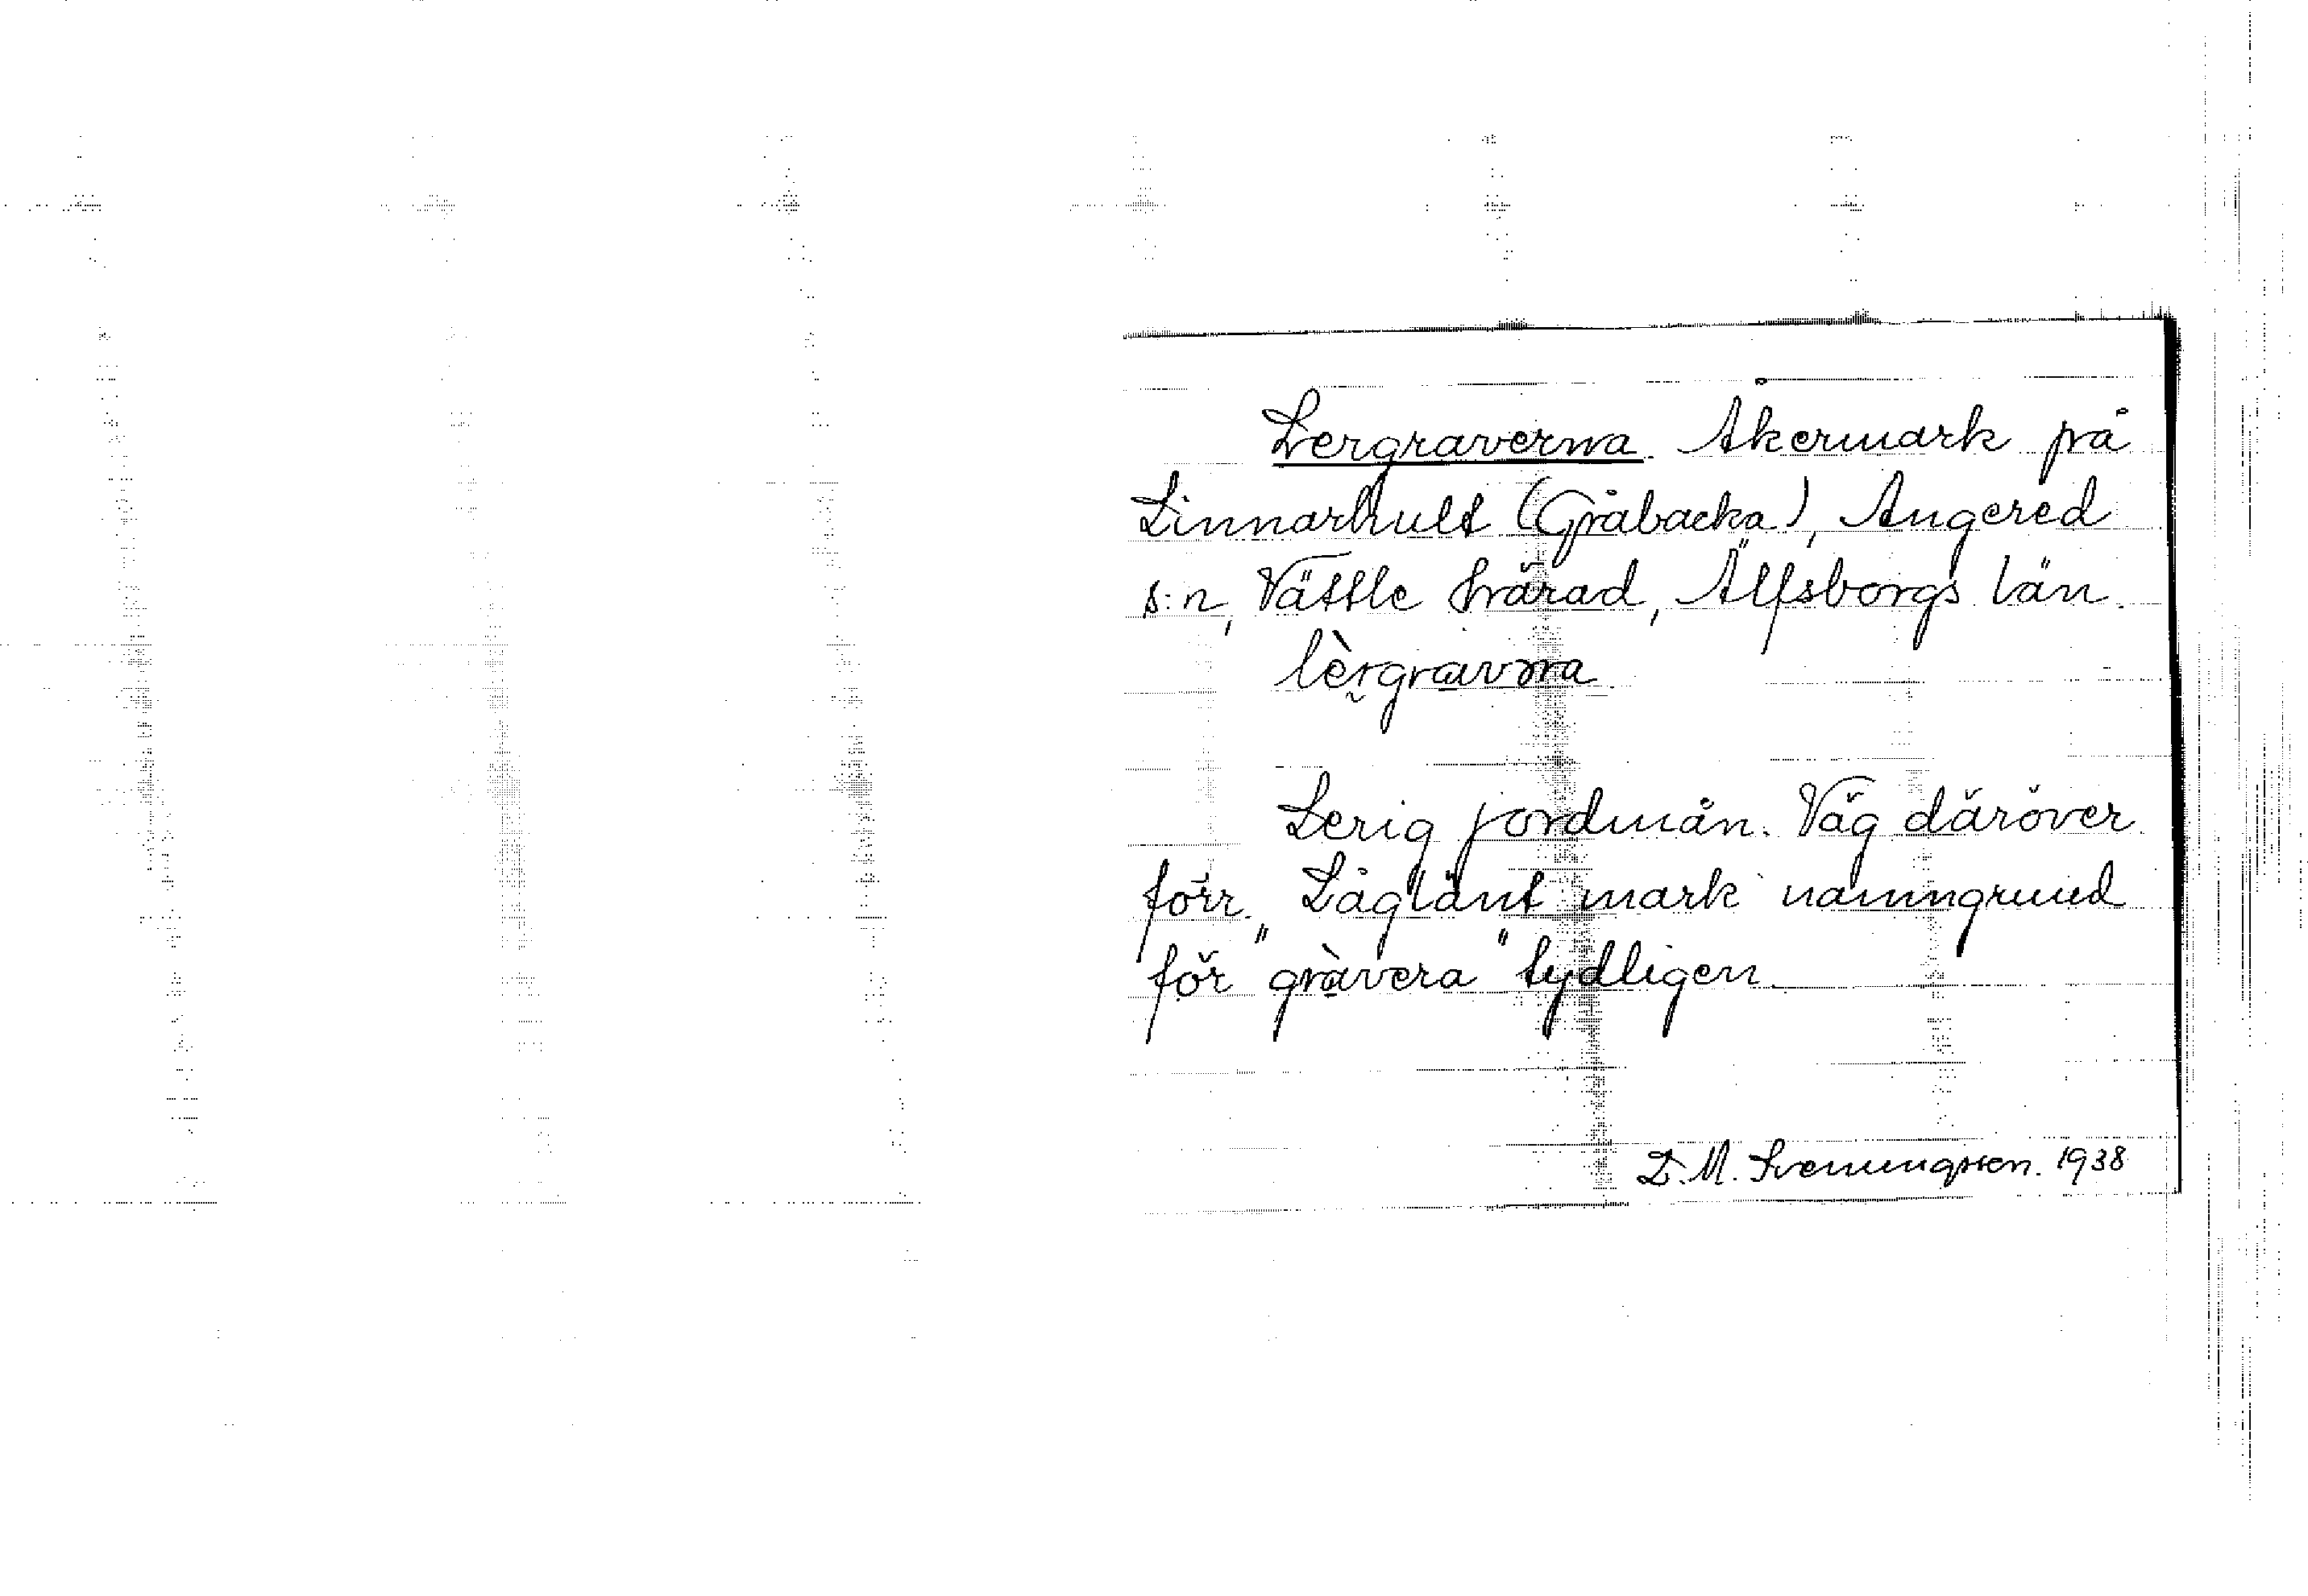 Lergraverna. Åkermark på
Linnarhult (Gråbacka), Angered
s:n, Vättle härad, Älfsborgs län.
lèrgravɔrna
Lerig jordmån. Väg däröver
förr. Låglänt mark namngrund
för "gràvera" tydligen.
D. M. Svenungsson. 1938